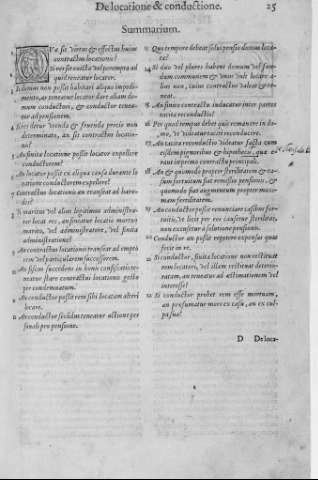 De locatione & conductione. 25
Summarium.
Quæ sit virtus & effectus huius
contractus locationis?
Si res sit evicta vel perempta ad
quid teneatur locator.
Si domum non possit habitari aliquo impedi-
mento, an teneatur locator dare aliam do-
mum conductori, & conductor tenea-
tur ad pensionem.
Si res detur utenda & fruenda precio non
determinato, an sit contractus locatio-
nis?
An finita locatione possit locator expellere
conductorem?
An locator possit ex aliqua causa durante lo-
catione conductorem expellere?
Contractus locationis an transeat ad hære-
des?
Si maritus vel alius legitimus administra-
tor locat res, an finiatur locatio mortuo
marito, vel administratore, vel finita
administratione?
An contractus locationis transeat ad empto-
rem vel particularem successorem.
An fiscus succedens in bonis confiscatis te-
neatur stare contractibus locationis gestis
per condemnatum?
An conductor possit rem sibi locatam alteri
locare.
An conductor secundus teneatur actione per-
sonali pro pensione.
Quo tempore debeat solui pensio domus loca-
tæ?
Si duo vel plures habent domum vel fun-
dum communem & unus vult locare a-
lius non, cuius contractus valeat & te-
neat.
An finito contractu inducatur inter partes
tacita reconductio?
Per quod tempus debet quis remanere in do-
mo, ut dicatur tacite reconducere.
An tacita reconductio dicatur facta cum
eisdem pignoribus & hypothecis, quæ e-
rant in primo contractu principali.
An & quomodo propter sterilitatem & ca-
sum fortuitum fiat remissio pensionis, &
quomodo fiat augmentum propter maxi-
mam fertilitatem.
An conductor possit renunciare casibus for-
tuitis, ut licet per eos causetur sterilitas,
non excusetur a solutione pensionis.
Conductor an possit repetere expensas quas
fecit in re.
Si conductor, finita locatione non restituat
rem locatori, vel illam retineat deterio-
ratam, an teneatur ad æstimationem vel
interesse?
Si conductor probet rem esse mortuam,
an præsumatur mors ex casu, an ex cul-
pa sua?
D De loca-